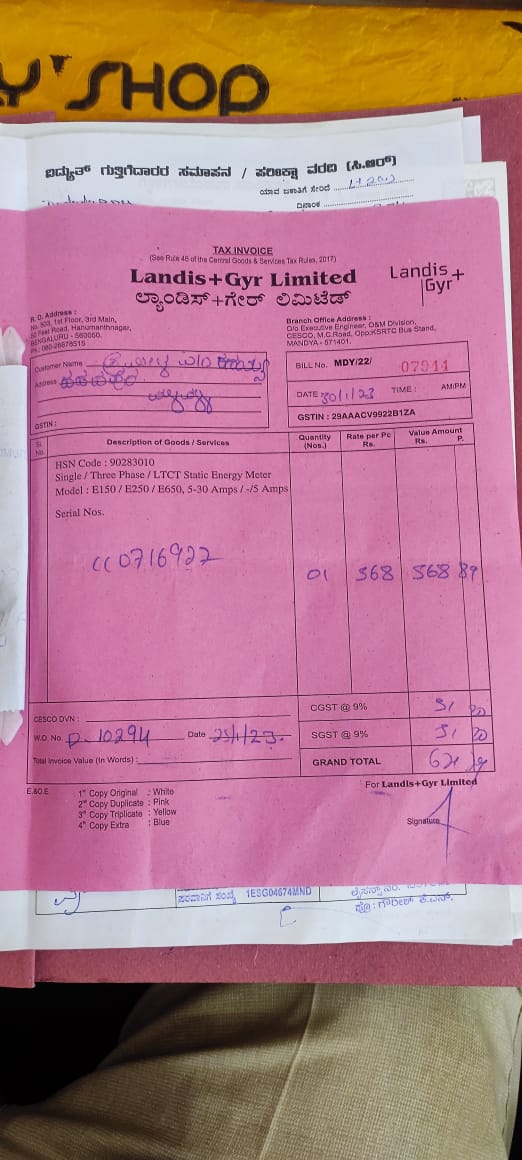 Y'SHOP
ವಿದ್ಯುತ್ ಗುತ್ತಿಗೆದಾರರ ಸಮಾಪನ / ಪರೀಕ್ಷಾ ವರದಿ (ಸಿ.ಆರ್)
ಯಾವ ಜಕಾತಿಗೆ ಸೇರಿದೆ
ದಿನಾಂಕ
TAX INVOICE
(See Rule 46 of the Central Goods & Services Tax Rules, 2017)
Landis+Gyr Limited
ಲ್ಯಾಂಡಿಸ್+ಗೇರ್ ಲಿಮಿಟೆಡ್
Landis+
Gyr
R. O. Address :
No. 503, 1st Floor, 3rd Main,
80 Feet Road, Hanumanthnagar,
BENGALURU - 560050.
Ph : 080-26676515
Branch Office Address :
O/o Executive Engineer, O&M Division,
CESCO, M.C.Road, Opp:KSRTC Bus Stand,
MANDYA - 571401.
Customer Name
Address
GSTIN :
BILL No. MDY/22/ 07911
DATE 30/1/23 TIME : AM/PM
GSTIN : 29AAACV9922B1ZA
Sl. No. Description of Goods / Services Quantity (Nos.) Rate per Pc Rs. Value Amount Rs. P.
HSN Code : 90283010
Single / Three Phase / LTCT Static Energy Meter
Model : E150 / E250 / E650, 5-30 Amps / -/5 Amps
Serial Nos.
CC0716927
01 568 568 89
CESCO DVN :
CGST @ 9% 51 20
W.O. No. D-10294 Date 25/1/23.
SGST @ 9% 51 20
Total Invoice Value (In Words) :
GRAND TOTAL
E.&O.E
For Landis+Gyr Limited
1st Copy Original : White
2nd Copy Duplicate : Pink
3rd Copy Triplicate : Yellow
4th Copy Extra : Blue
Signature
ಪರವಾನಿಗೆ ಸಂಖ್ಯೆ 1ESG04674MND
ಲೈಸನ್ಸ್ ನಂ.